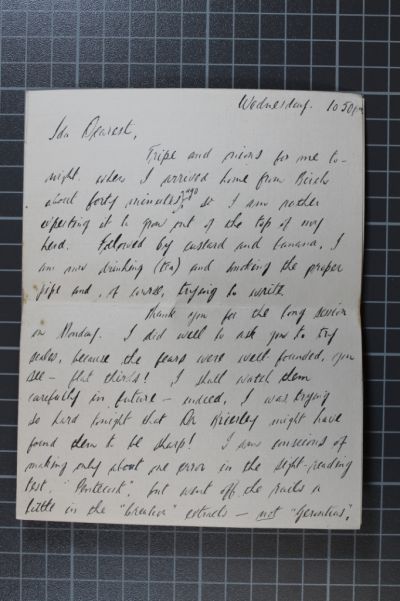 Wednesday. 10.50pm
Ida Dearest,
Tripe and onions for me to-
night, when I arrived home from Birch
about forty minutes ago so I am rather
expecting it to grow out of the top of my
head. Followed by custard and banana, I
am now drinking (tea) and smoking the proper
pipe and, of course, trying to write.
Thank you for the long session
on Monday. I did well to ask you to try
scales, because the fears were well founded, you
see – flat thirds! I shall watch them
carefully in future – indeed, I was trying
so hard tonight that Dr might have
found them to be sharp! I am conscious of
making only about one error in the sight-reading
test, "Pentecost", but went off the rails a
little in the "Creation" extracts – not "Gerontius",